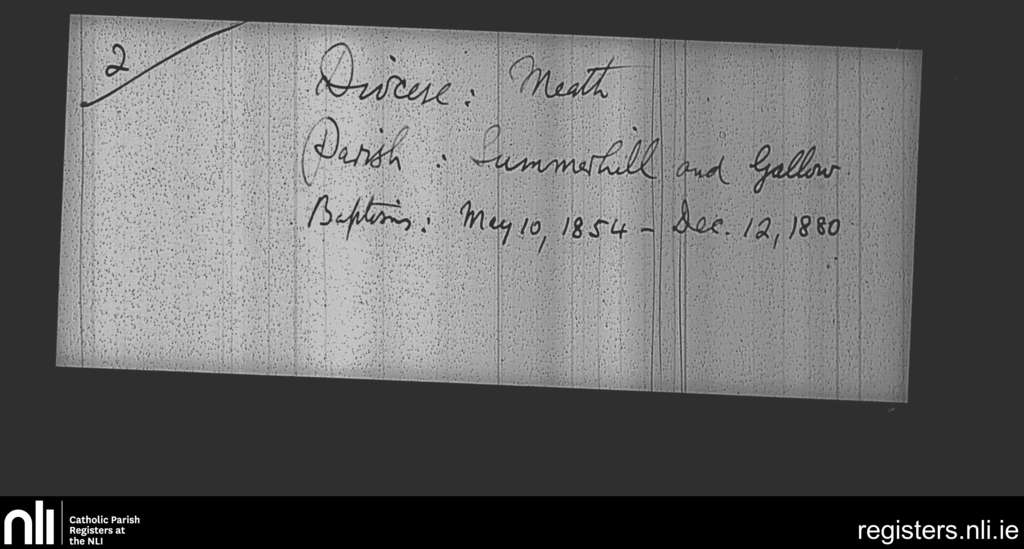 2
Diocese: Meath
Parish: Summerhill and Gallow
Baptisms: May 10, 1854 - Dec. 12, 1880
nli
Catholic Parish
Registers at
the NLI
registers.nli.ie